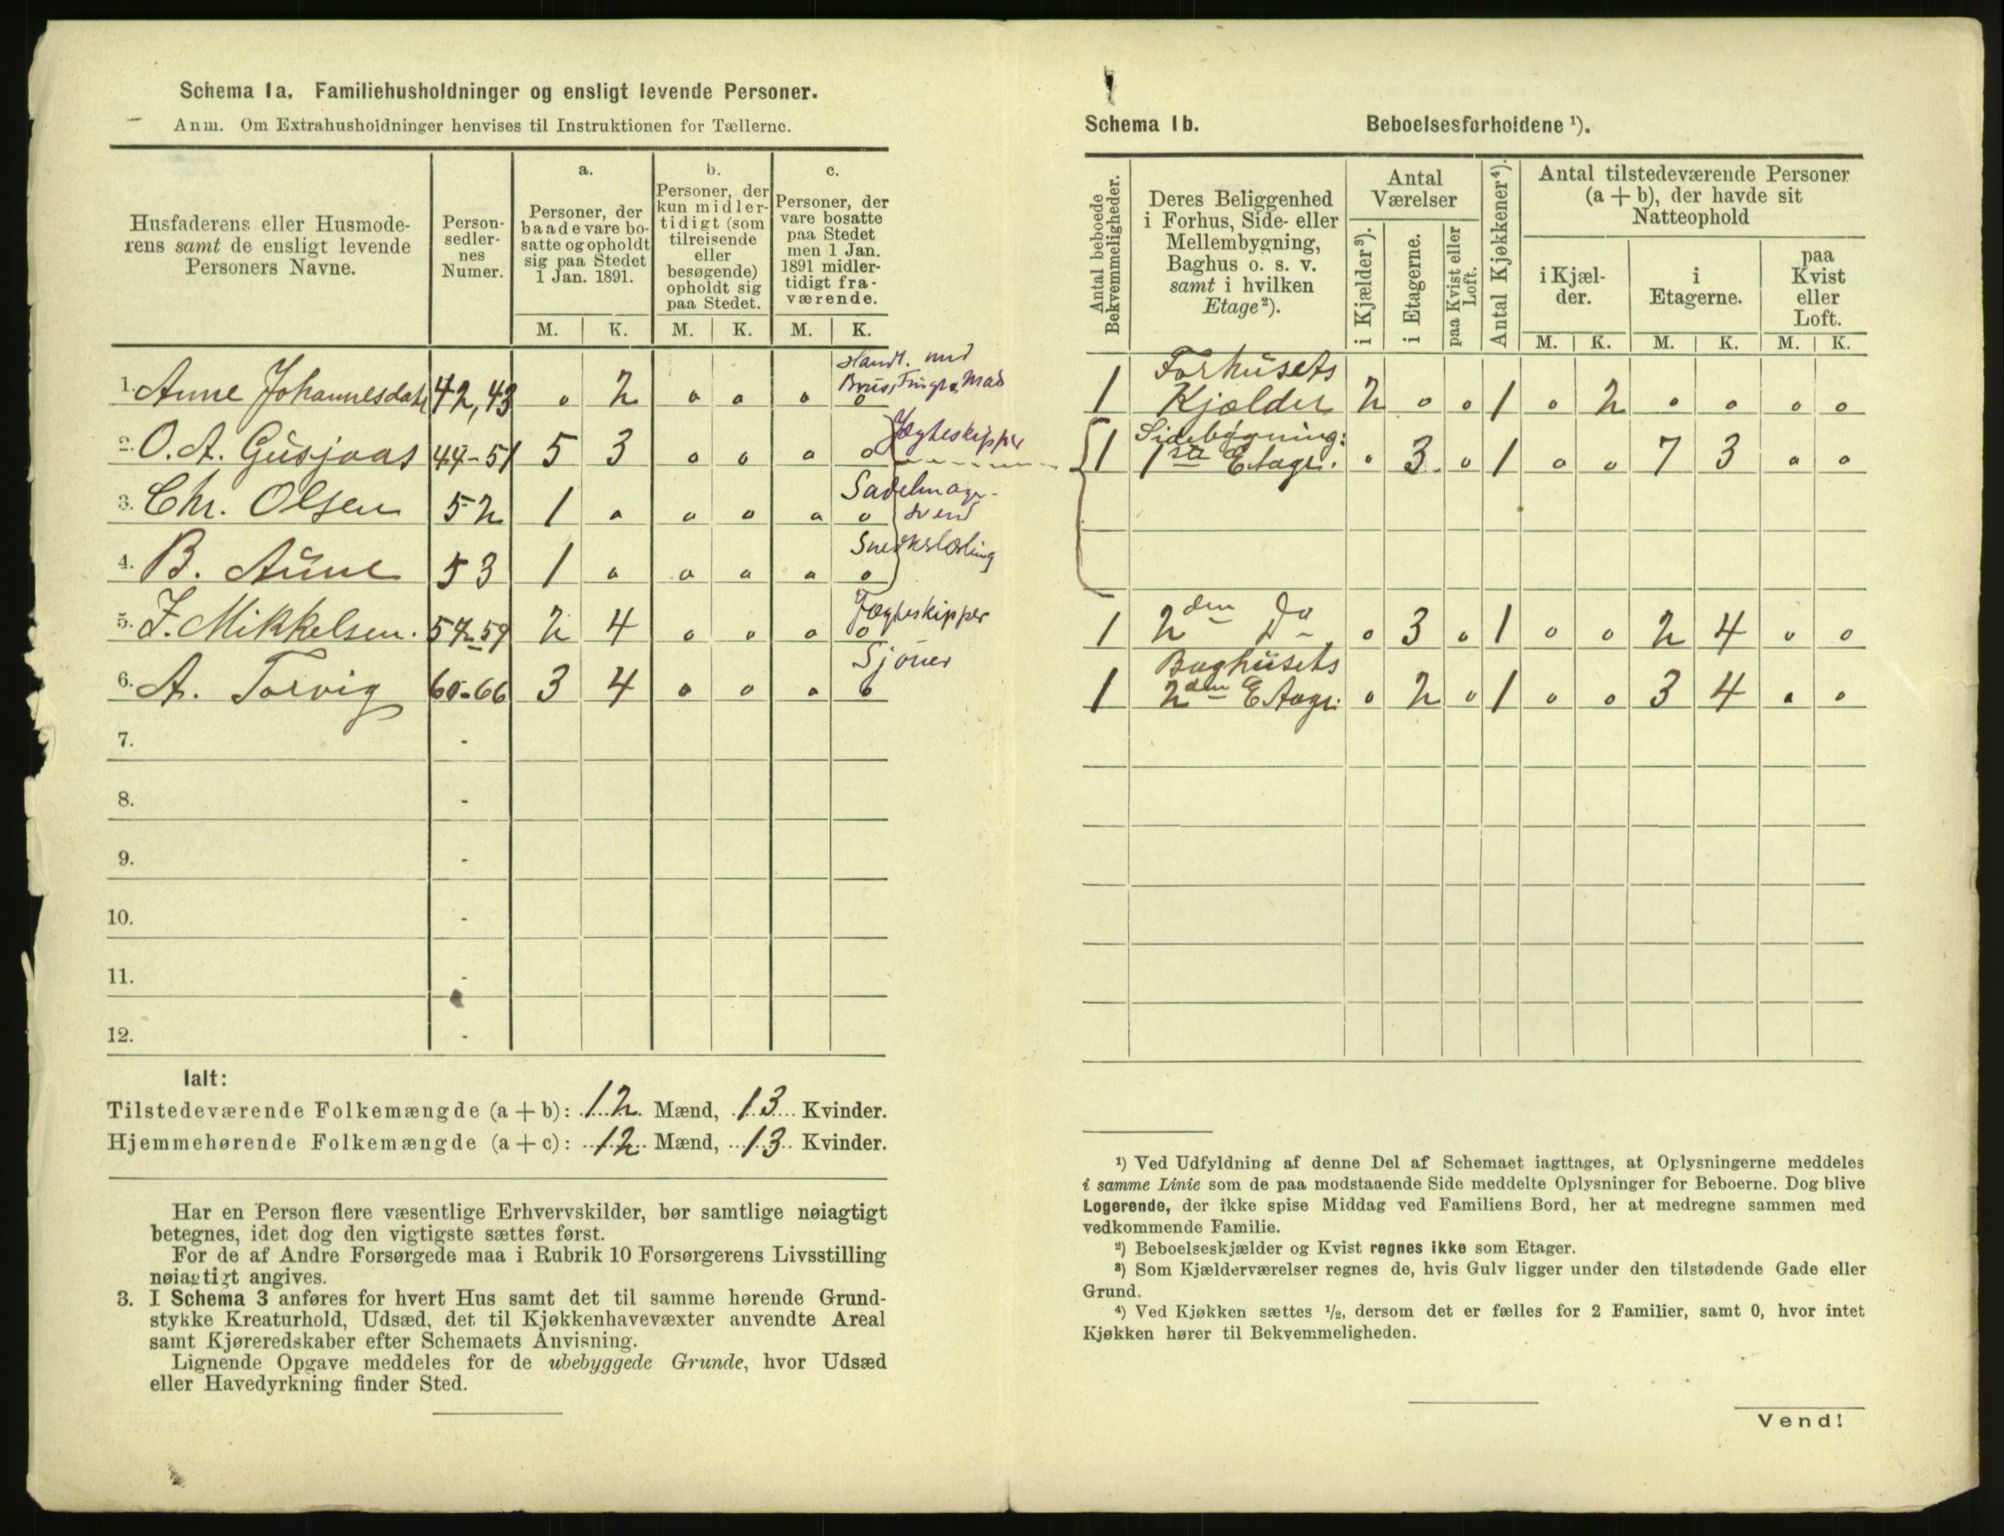 Schema 1a. Familiehusholdninger og ensligt levende Personer.
Anm. Om Extrahusholdninger henvises til Instruktionen for Tællerne.
Husfaderens eller Husmode-
rens samt de ensligt levende
Personers Navne.
Person-
sedler-
nes
Numer.
a.
Personer, der
baade vare bo-
satte og opholdt
sig paa Stedet
1 Jan. 1891.
b.
Personer, der
kun midler-
tidigt (som
tilreisende
eller
besøgende)
opholdt sig
paa Stedet.
c.
Personer, der
vare bosatte
paa Stedet
men 1 Jan.
1891 midler-
tidigt fra-
værende.
M. K. M. K. M. K.
Handl. med
Brus, Mad
1. Anne Johannesdatr 42, 43 0 2 0 0 0 0
Jægteskipper
2. O. A. Gusjaas 44-51 5 3 0 0 0 0
Sadelmager-
svend
3. Chr. Olsen 52 1 0 0 0 0 0
4. B. Aune 53 1 0 0 0 0 0
Jægteskipper
5. J. Mikkelsen. 54-59 2 4 0 0 0 0
Sjöuer
6. A. Torvig 60-66 3 4 0 0 0 0
7. -
8. -
9. -
10. -
11. -
12. -
Ialt:
Tilstedeværende Folkemængde (a + b): 12 Mænd, 13 Kvinder.
Hjemmehørende Folkemængde (a + c): 12 Mænd, 13 Kvinder.
Har en Person flere væsentlige Erhvervskilder, bør samtlige nøiagtigt
betegnes, idet dog den vigtigste sættes først.
For de af Andre Forsørgede maa i Rubrik 10 Forsørgerens Livsstilling
nøiagtigt angives.
3. I Schema 3 anføres for hvert Hus samt det til samme hørende Grund-
stykke Kreaturhold, Udsæd, det til Kjøkkenhavevæxter anvendte Areal
samt Kjøreredskaber efter Schemaets Anvisning.
Lignende Opgave meddeles for de ubebyggede Grunde, hvor Udsæd
eller Havedyrkning finder Sted.
Schema 1b. Beboelsesforholdene ¹).
Antal beboede
Bekvemmeligheder.
Deres Beliggenhed
i Forhus, Side- eller
Mellembygning,
Baghus o. s. v.
samt i hvilken
Etage²).
Antal
Værelser
i Kjælder³).
i Etagerne.
paa Kvist eller
Loft.
Antal Kjøkkener⁴).
Antal tilstedeværende Personer
(a + b), der havde sit
Natteophold
i Kjæl-
der.
i
Etagerne.
paa
Kvist
eller
Loft.
M. K. M. K. M. K.
Forhusets
1 Kjælder 2 0 0 1 0 2 0 0 0 0
Sidebygning:
1 1ste Etage. 0 3 0 1 0 0 7 3 0 0
1 2den Do 0 3 0 1 0 0 2 4 0 0
Baghusets
1 2den Etage. 0 2 0 1 0 0 3 4 0 0
¹) Ved Udfyldning af denne Del af Schemaet iagttages, at Oplysningerne meddeles
i samme Linie som de paa modstaaende Side meddelte Oplysninger for Beboerne. Dog blive
Logerende, der ikke spise Middag ved Familiens Bord, her at medregne sammen med
vedkommende Familie.
²) Beboelseskjælder og Kvist regnes ikke som Etager.
³) Som Kjælderværelser regnes de, hvis Gulv ligger under den tilstødende Gade eller
Grund.
⁴) Ved Kjøkken sættes ½, dersom det er fælles for 2 Familier, samt 0, hvor intet
Kjøkken hører til Bekvemmeligheden.
Vend!